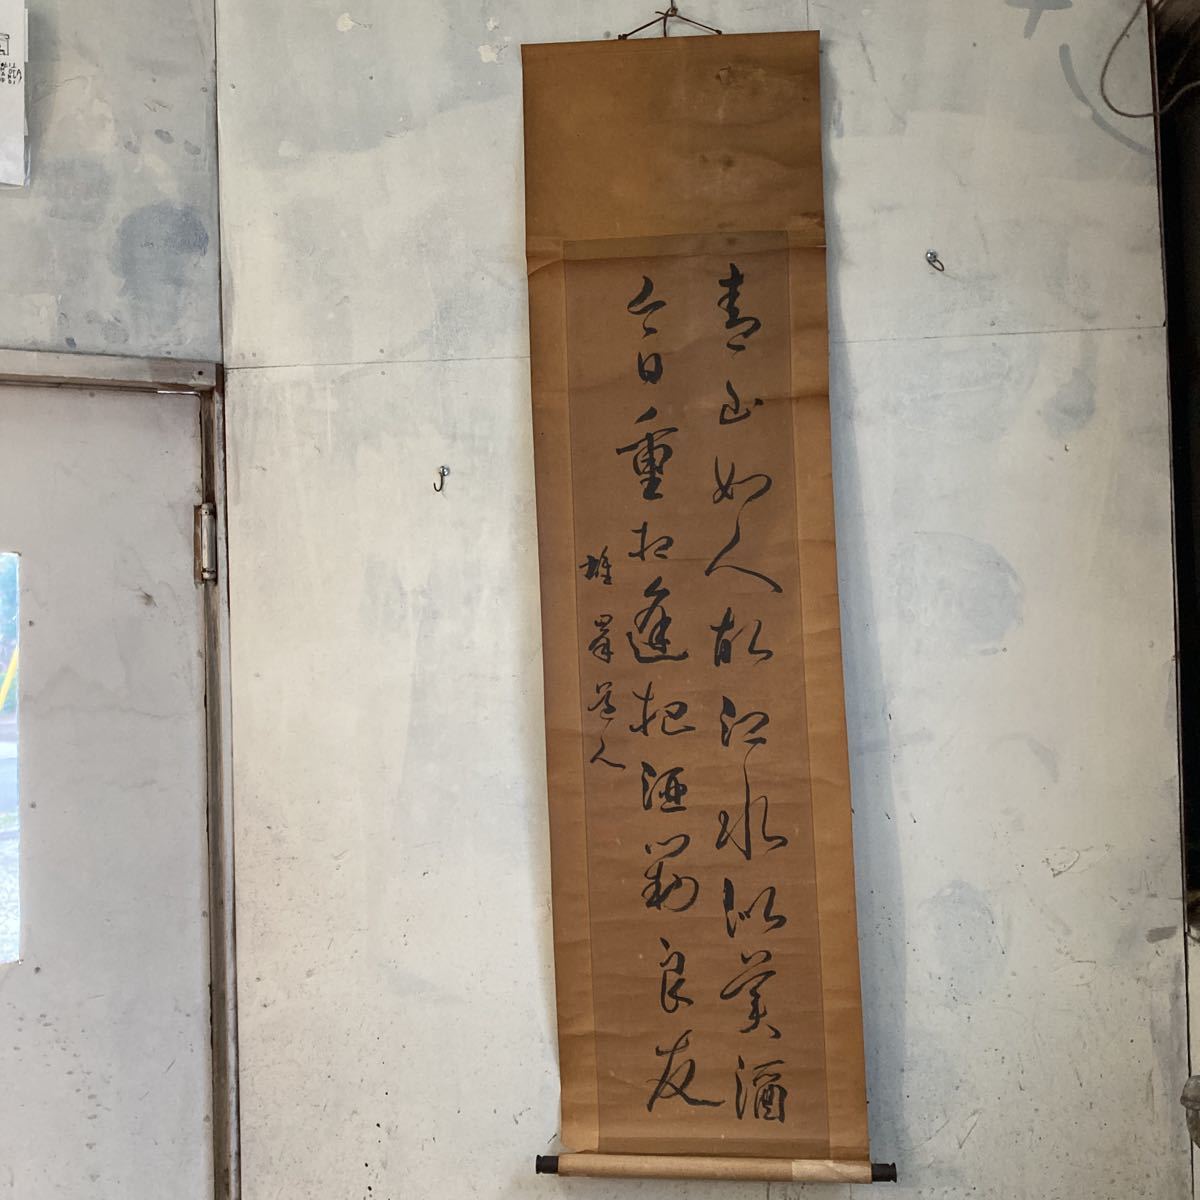 青山如人故江水似美酒
今日重相逢把酒對良友
雄 道人